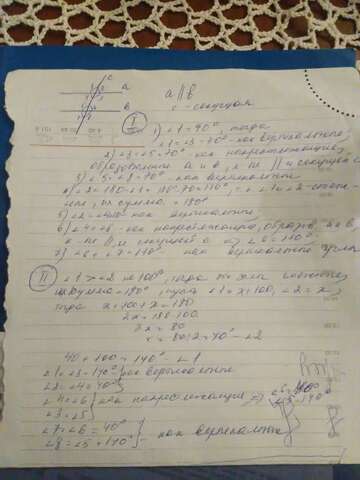 c
a
b
a || b
c - секущая
I
1) ∠1 = 70°, тогда
∠1 = ∠3 = 70° - как вертикальные
2) ∠3 = ∠5 = 70° - как накрестлежащие,
a и b, к-ые || и секущей c
3) ∠5 = ∠7 = 70° - как вертикальные
4) ∠2 = 180 - ∠1 = 110°, т.к. ∠1 и ∠2 - смеж
ные, их сумма = 180°
5) ∠2 = ∠4 как вертикальные
6) ∠4 = ∠6 - как накрестлежащие, образов. a и b
к-ые || и секущей c => ∠6 = 110°
как вертикальные углы
II
∠1 > ∠2 на 100°, тогда т.к. они смежные,
их сумма = 180°, пусть ∠1 = x+100, ∠2 = x,
тогда x + 100 + x = 180
2x = 180 - 100
2x = 80
x = 80:2 = 40° - ∠2
40 + 100 = 140° ∠1
∠1 = ∠3 = 140° как вертикальные
∠2 = ∠4 = 40°
∠4 = ∠6 как накрестлежащие =>
∠3 = ∠5
∠5 = 140°
∠7 = ∠6 = 40°
как вертикальные